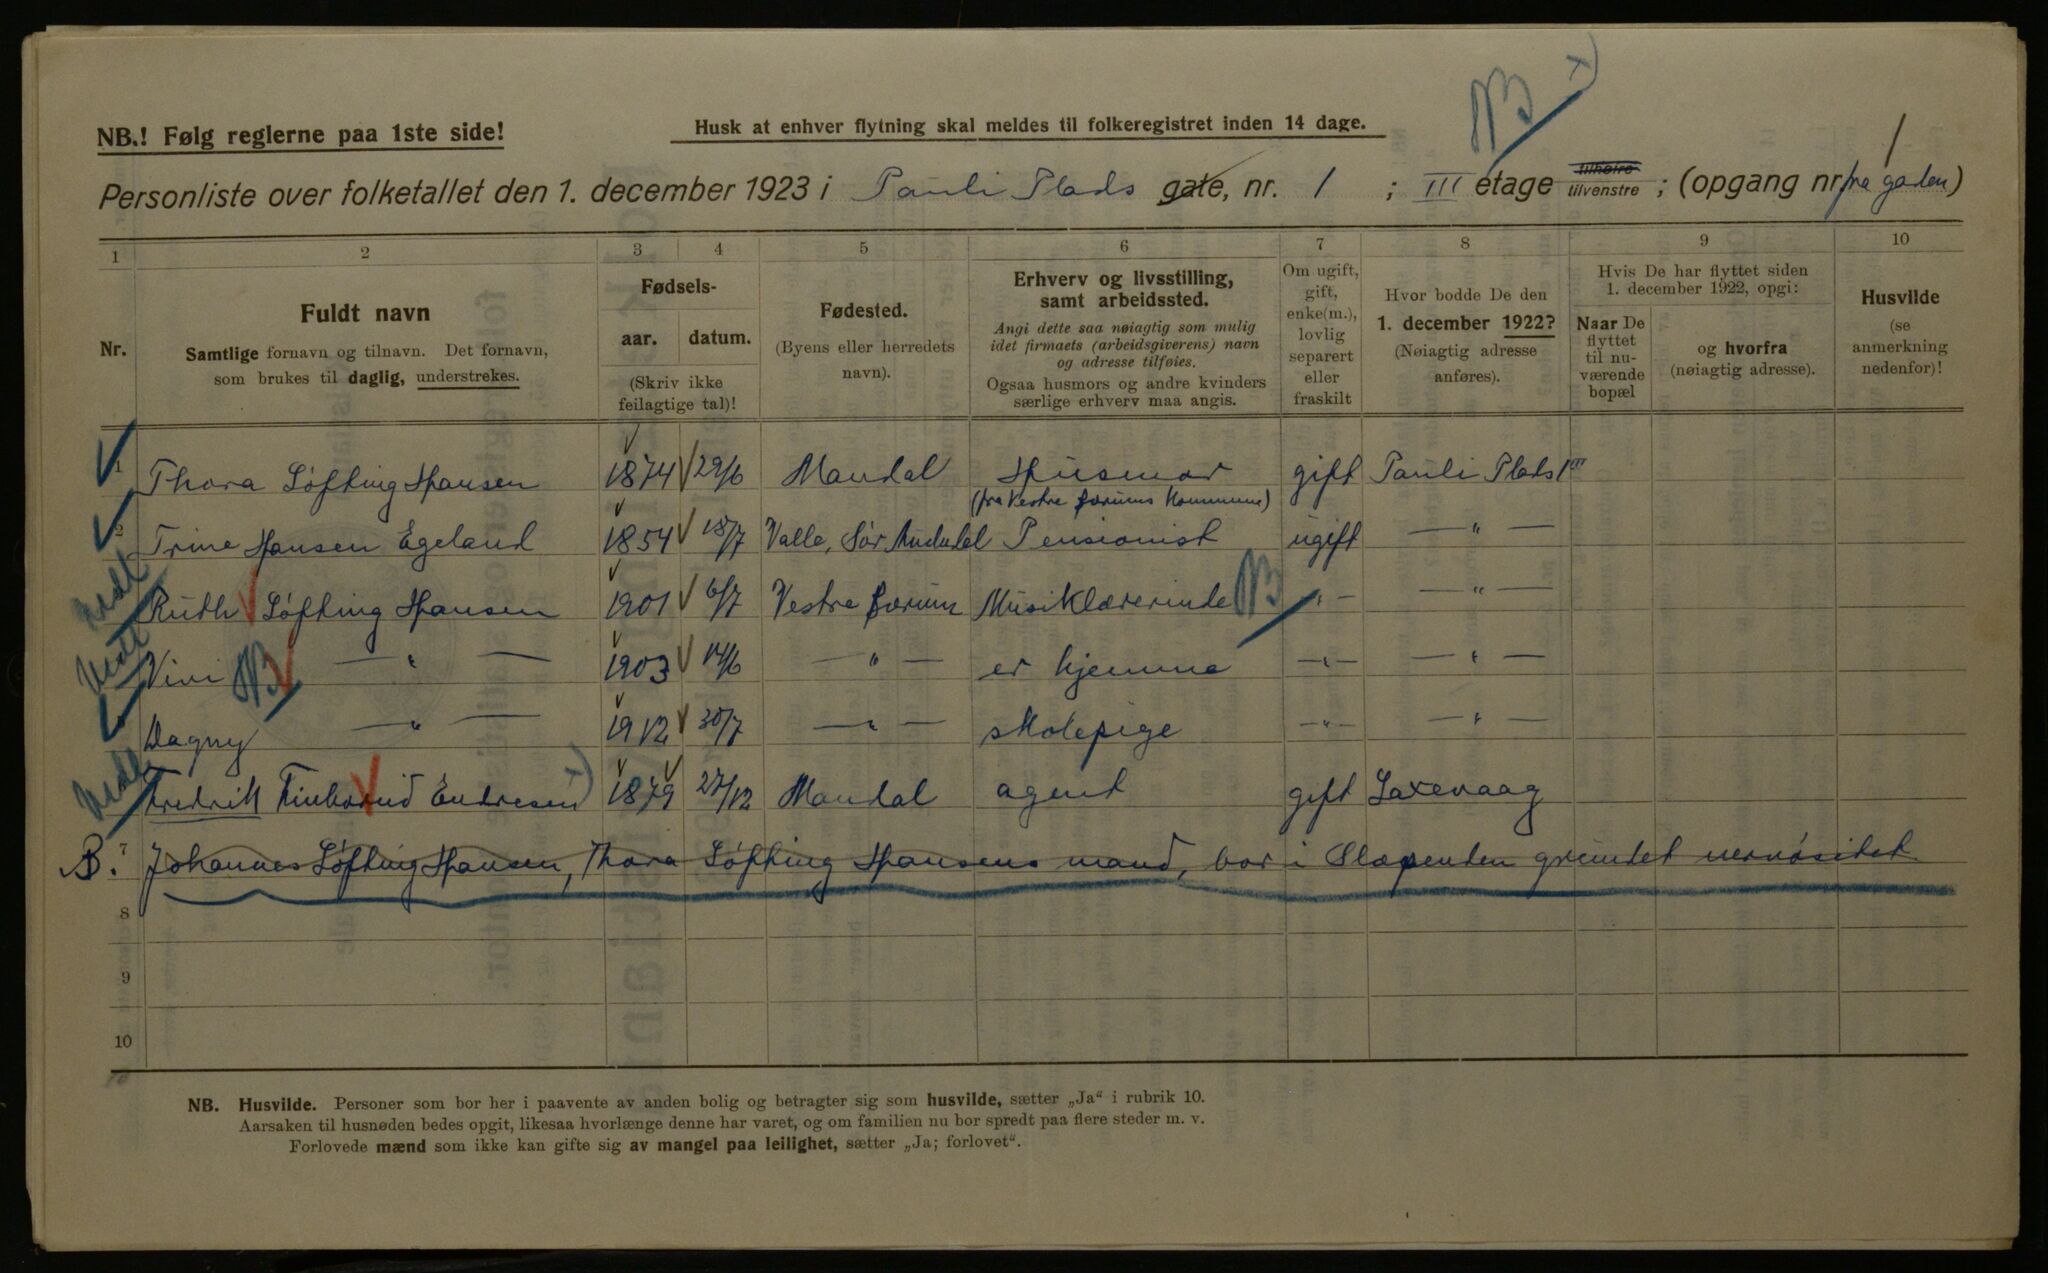 NB.! Følg reglerne paa 1ste side!
Husk at enhver flytning skal meldes til folkeregistret inden 14 dage.
NB X)
Personliste over folketallet den 1. december 1923 i Pauli Plads gate, nr. 1 ; III etage tilhøire tilvenstre ; (opgang nr. 1 fra gaden)
1 2 3 4 5 6 7 8 9 10
Nr.
Fuldt navn
Samtlige fornavn og tilnavn. Det fornavn,
som brukes til daglig, understrekes.
Fødsels-
aar. datum.
(Skriv ikke
feilagtige tal)!
Fødested.
(Byens eller herredets
navn).
Erhverv og livsstilling,
samt arbeidssted.
Angi dette saa nøiagtig som mulig
idet firmaets (arbeidsgiverens) navn
og adresse tilføies.
Ogsaa husmors og andre kvinders
særlige erhverv maa angis.
Om ugift,
gift,
enke(m.),
lovlig
separert
eller
fraskilt
Hvor bodde De den
1. december 1922?
(Nøiagtig adresse
anføres).
Hvis De har flyttet siden
1. december 1922, opgi:
Naar De
flyttet
til nu-
værende
bopæl
og hvorfra
(nøiagtig adresse).
Husvilde
(se
anmerkning
nedenfor)!
1 Thora Løfting Hansen 1874 29/6 Mandal Husmor gift Pauli Plads 1 III
(fra Vestre Færums Kommune)
2 Trine Hansen Egeland 1854 18/7 Valle, Sør Audndal Pensionist ugift — " —
Ruth Løfting Hansen 1901 6/7 Vestre Færum Musiklærerinde NB - " - — " —
Vivi NB — " — 1903 14/6 — " — er hjemme - " - — " —
Dagny — " — 1912 30/7 — " — skolepige - " - — " —
Fredrik Endresen X) 1879 27/12 Mandal agent gift Laxevaag
B. 7 Johannes Løfting Hansen, Thora Løfting Hansens mand, bor i Slæpenden grundet nervøsitet.
8
9
10
NB. Husvilde. Personer som bor her i paavente av anden bolig og betragter sig som husvilde, sætter „Ja“ i rubrik 10.
Aarsaken til husnøden bedes opgit, likesaa hvorlænge denne har varet, og om familien nu bor spredt paa flere steder m. v.
Forlovede mænd som ikke kan gifte sig av mangel paa leilighet, sætter „Ja; forlovet“.